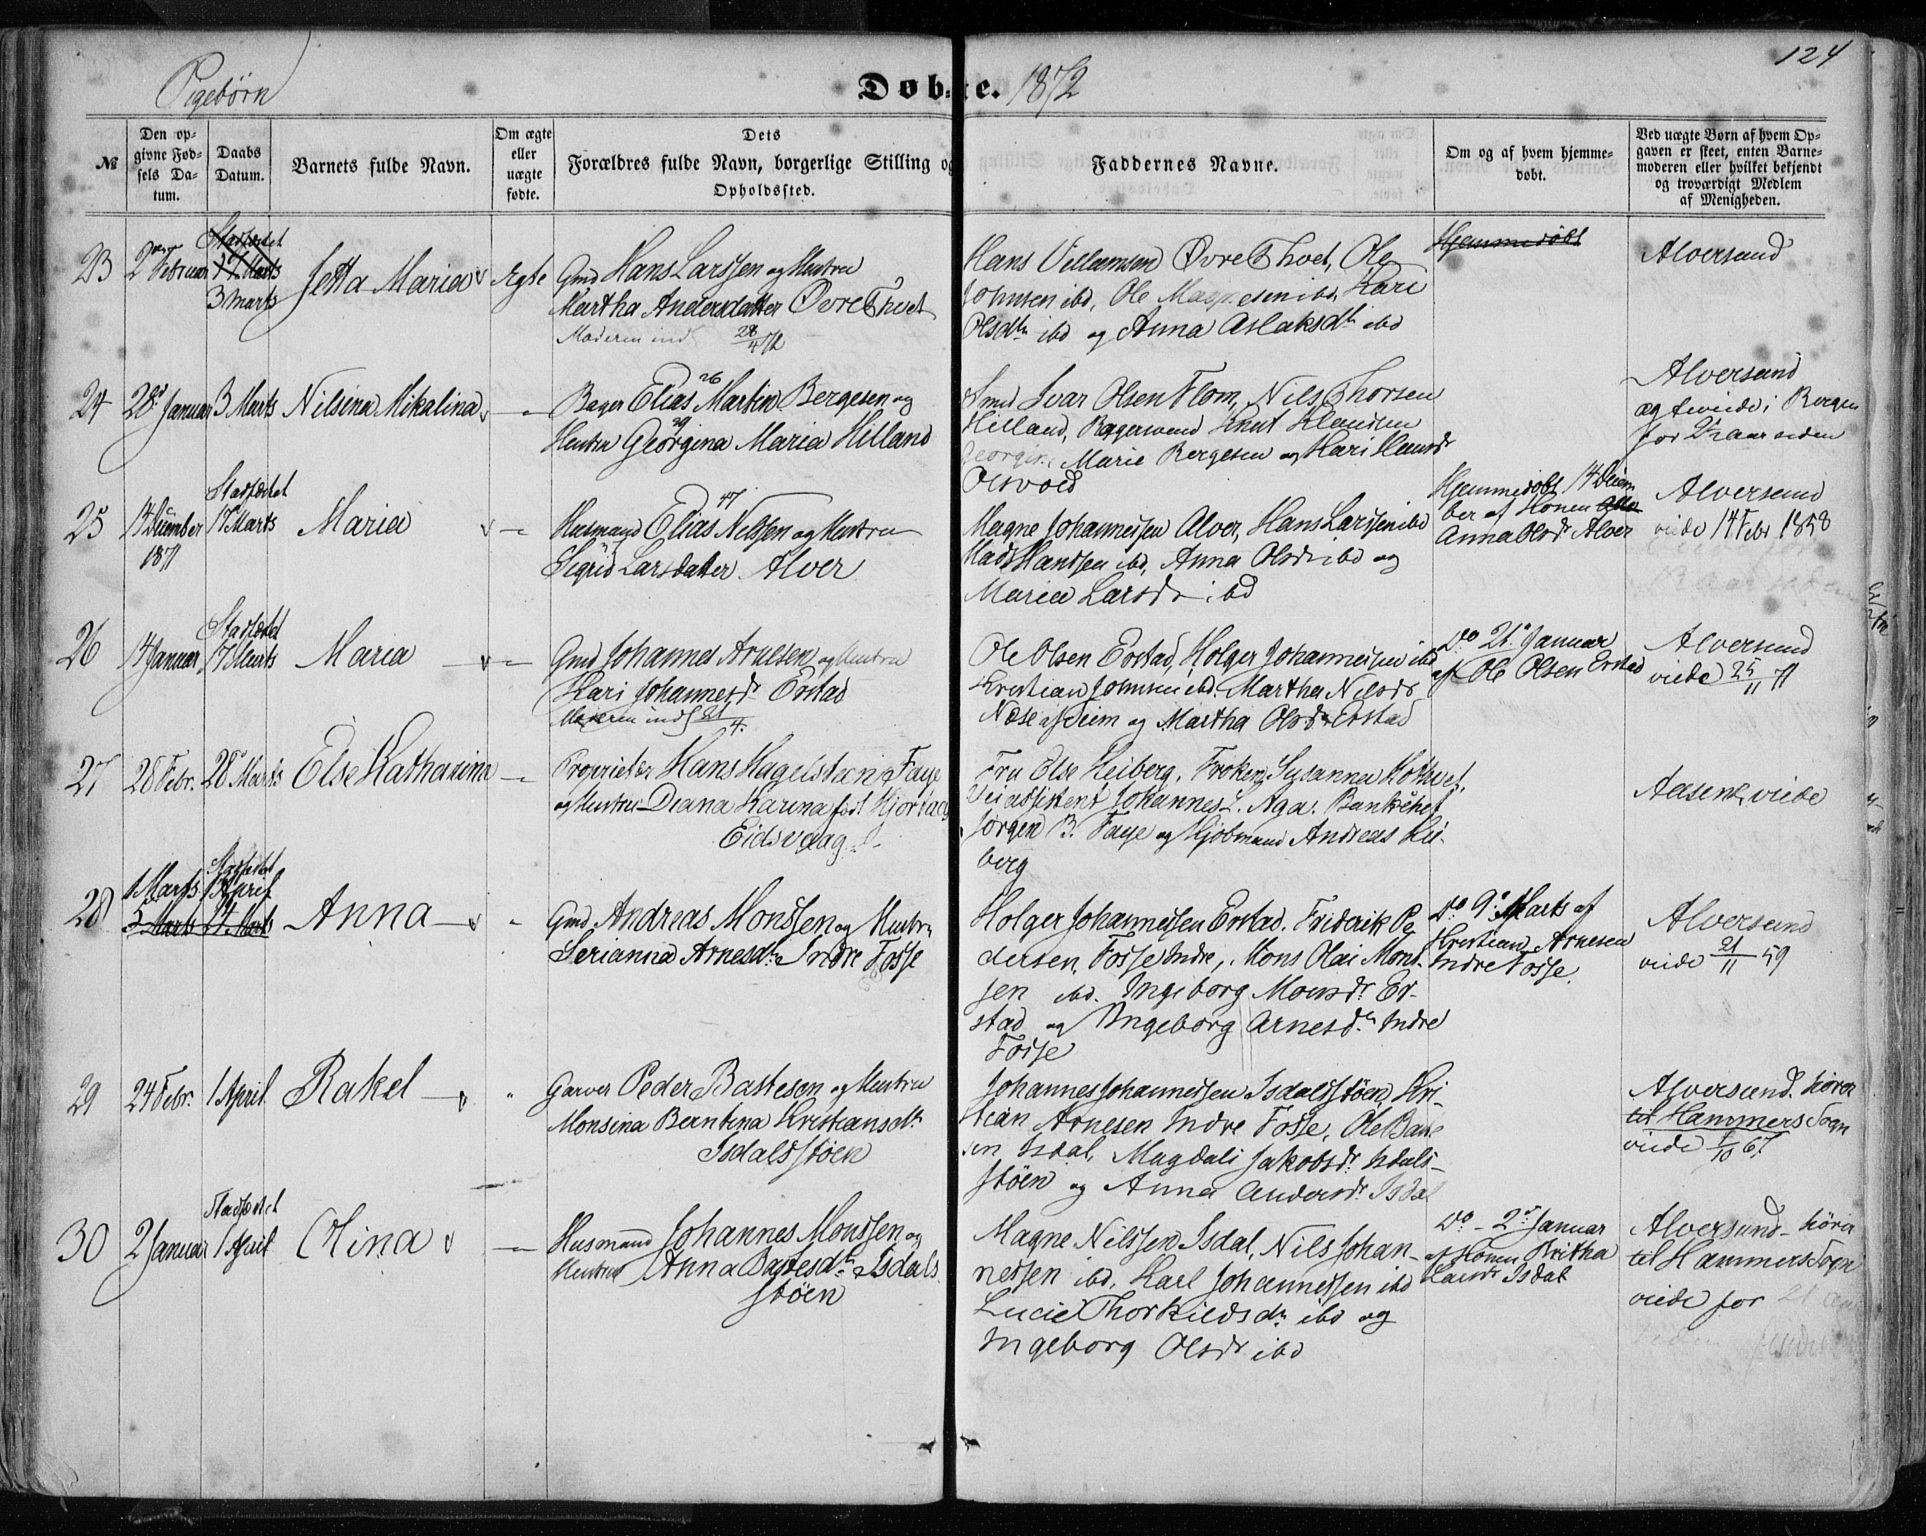 124
Pigebørn
Døbte. 1872
№
Den opgivne Fødsels Datum.
Daabs Datum.
Barnets fulde Navn.
Om ægte eller uægte fødte.
Dets Forældres fulde Navn, borgerlige Stilling og Opholdssted.
Faddernes Navne.
Om og af hvem hjemmedøbt.
Ved uægte Børn af hvem Opgaven er skeet, enten Barnemoderen eller hvilket bekjendt og troværdigt Medlem af Menigheden.
23
2den Februar
Stadfæstet
17 Marts
3 Marts
Jetta Maria
Ægte
Gmd Hans Larssen og Hustru
Martha Andersdatter Øvre Thvet
Moderen inds 28/4 72
Hans Villumsen Øvre Thvet, Ole
Johnsen ibd, Ole Magnesen ibd, Kari
Olsdtr ibd og Anna Aslaksdtr ibd
Hjemmedøbt
Alversund
24
28 Januar
3 Marts
Nilsina Mikalina
Bager Elias Martin Bergesen og
26
Hustru Georgina Maria Hilland
29
Smed Ivar Olsen Flom, Nils Thorsen
Hilland, Bagersvend Knut Klausen
Georgine Marie Bergesen og Kari Hansdr
Olsvold
Alversund
og tviede i Bergen
for 2½ aar siden
25
14 December
1871
Stadfæstet
17 Marts
Maria
Husmand Elias Nilssen og Hustru
47
Sigrid Larsdatter Alver
Magne Johannessen Alver, Hans Larssen ibd
Mads Hanssen ibd, Anna Olsdr ibd og
Maria Larsdr ibd
Hjemmedøbt 14 Decem
ber af Konen
Anna Olsdr Alver
Alversund
viede 14 Febr 1858
26
14 Januar
Stadfæstet
17 Marts
Maria
Gmd Johannes Arnesen og Hustru
Kari Johannesdr Erstad
Moderen inds 21/4
Ole Olsen Erstad, Holger Johannessen ibd
Kristian Johnsen ibd. Martha Nilsdr
Næse af Seim og Martha Olsdr Erstad
Do 21 Januar
af Ole Olsen Erstad
Alversund
viede 25/11 71
27
28 Febr.
28 Marts
Else Katharina
Proprietær Hans Hagelsteen Faye
og Hustru Diana Karina fød Hjorthøy
Eidsvaag
Fru Else Heiberg, Frøken Susanna
Veiassistent Johannes L. Aga. Bankchef
Jørgen B. Faye og Kjøbmand Andreas Hei-
berg
Aasene viede
28
1 Marts
5 Marts
Stadfæstet
1 April
24 Marts
Anna
Gmd. Andreas Monssen og Hustru
Serianna Arnesdr Indre Fosse
Holger Johannessen Erstad. Friderik Pe
dersen, Fosse Indre, Mons Olai Mons-
sen ibd. Ingeborg Monsdr Er-
stad og Ingeborg Arnesdr Indre
Fosse
Do 9 Marts af
Kristian Arnesen
Indre Fosse.
Alversund
viede 21/11 59
29
24 Febr.
1 April
Rakel
Garver Peder Bastesen og Hustru
Monsina Berntina Kristiansdtr
Isdalsstøen
Johannes Johannessen Isdalsstøen, Kri-
stian Arnesen Indre Fosse, Ole Baste
sen Isdal, Magdali Jakobsdr Isdals-
støen og Anna Andersdr Isdal
Alversund. hører
til Hammers Sogn
viede /10 67
30
2 Januar
Stadfæstet
1 April
Olina
Husmand Johannes Monssen og
Hustru Anna Bastesdtr Isdals
støen
Magne Nilssen Isdal, Nils Johan-
nessen ibd. Karl Johannessen ibd
Lucie Thorkildsdr ibd og
Ingeborg Olsdr ibd
Do - 2 Januar
af Konen Britha
Larsdr Isdal
Alversund - hører
til Hammers Sogn
viede for 21